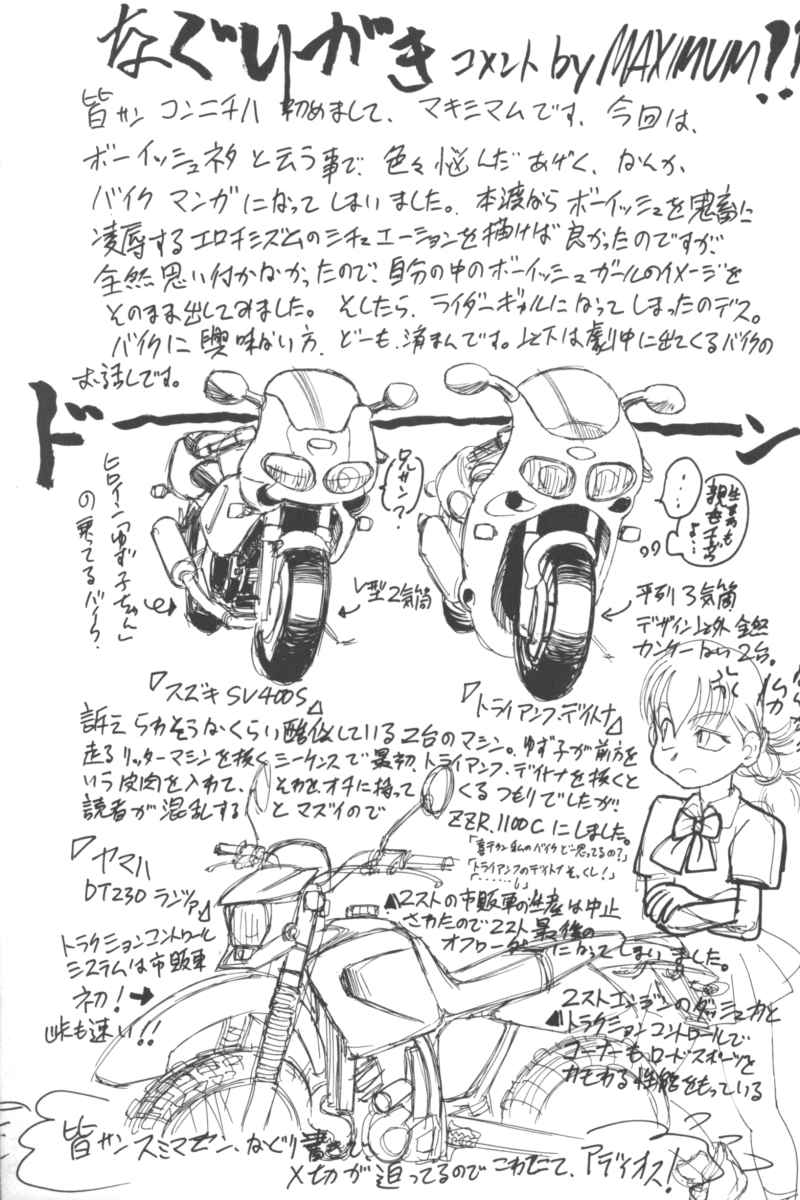 なぐりがき コメント by MAXIMUM!!
皆サン コンニチハ 初めまして、マキシマムです、今回は、
ボーイッシュネタと云う事で、色々悩んだあげく、なんか、
バイクマンガになってしまいました。本来ならボーイッシュを鬼畜に
凌辱するエロチシズムのシチュエーションを描けば良かったのですが、
全然思い付かなかったので、自分の中のボーイッシュガールのイメージを
そのまま出してみました。そしたら、ライダーギャルになってしまったのデス。
バイクに興味ない方、どーも、済まんです。以下は劇中に出てくるバイクの
お話しです。
ドーン
ヒロイン「ゆず子ちゃん」
の乗ってるバイク。
兄サン?
・・・
V型2気筒
並列3気筒
デザイン以外全然
カンケーない2台。
スズキSV400S
トライアンフ・デイトナ
訴えられそうなくらい酷似している2台のマシン。ゆず子が前方を
走るリッターマシンを抜くシーケンスで最初、トライアンフ・デイトナを抜くと
いう皮肉を入れて、それをオチに持ってくるつもりでしたが、
読者が混乱するとマズイので
ZZR1100Cにしました。
「トライアンフのデイトナそっくし!」
「・・・・・・」
ヤマハ
DT230ランツァ
トラクションコントロール
システムは市販車
初!
峠も速い!!
2ストの市販車の生産は中止
されたので2スト最後の
オフローダーになってしまいました。
2ストエンジンのダッシュ力と
トラクションコントロールで
コーナーも、ロードスポーツを
カモれる性能をもっている
皆サンスミマセン、なぐり書きで、
〆切が迫ってるのでこれにて、アディオス!